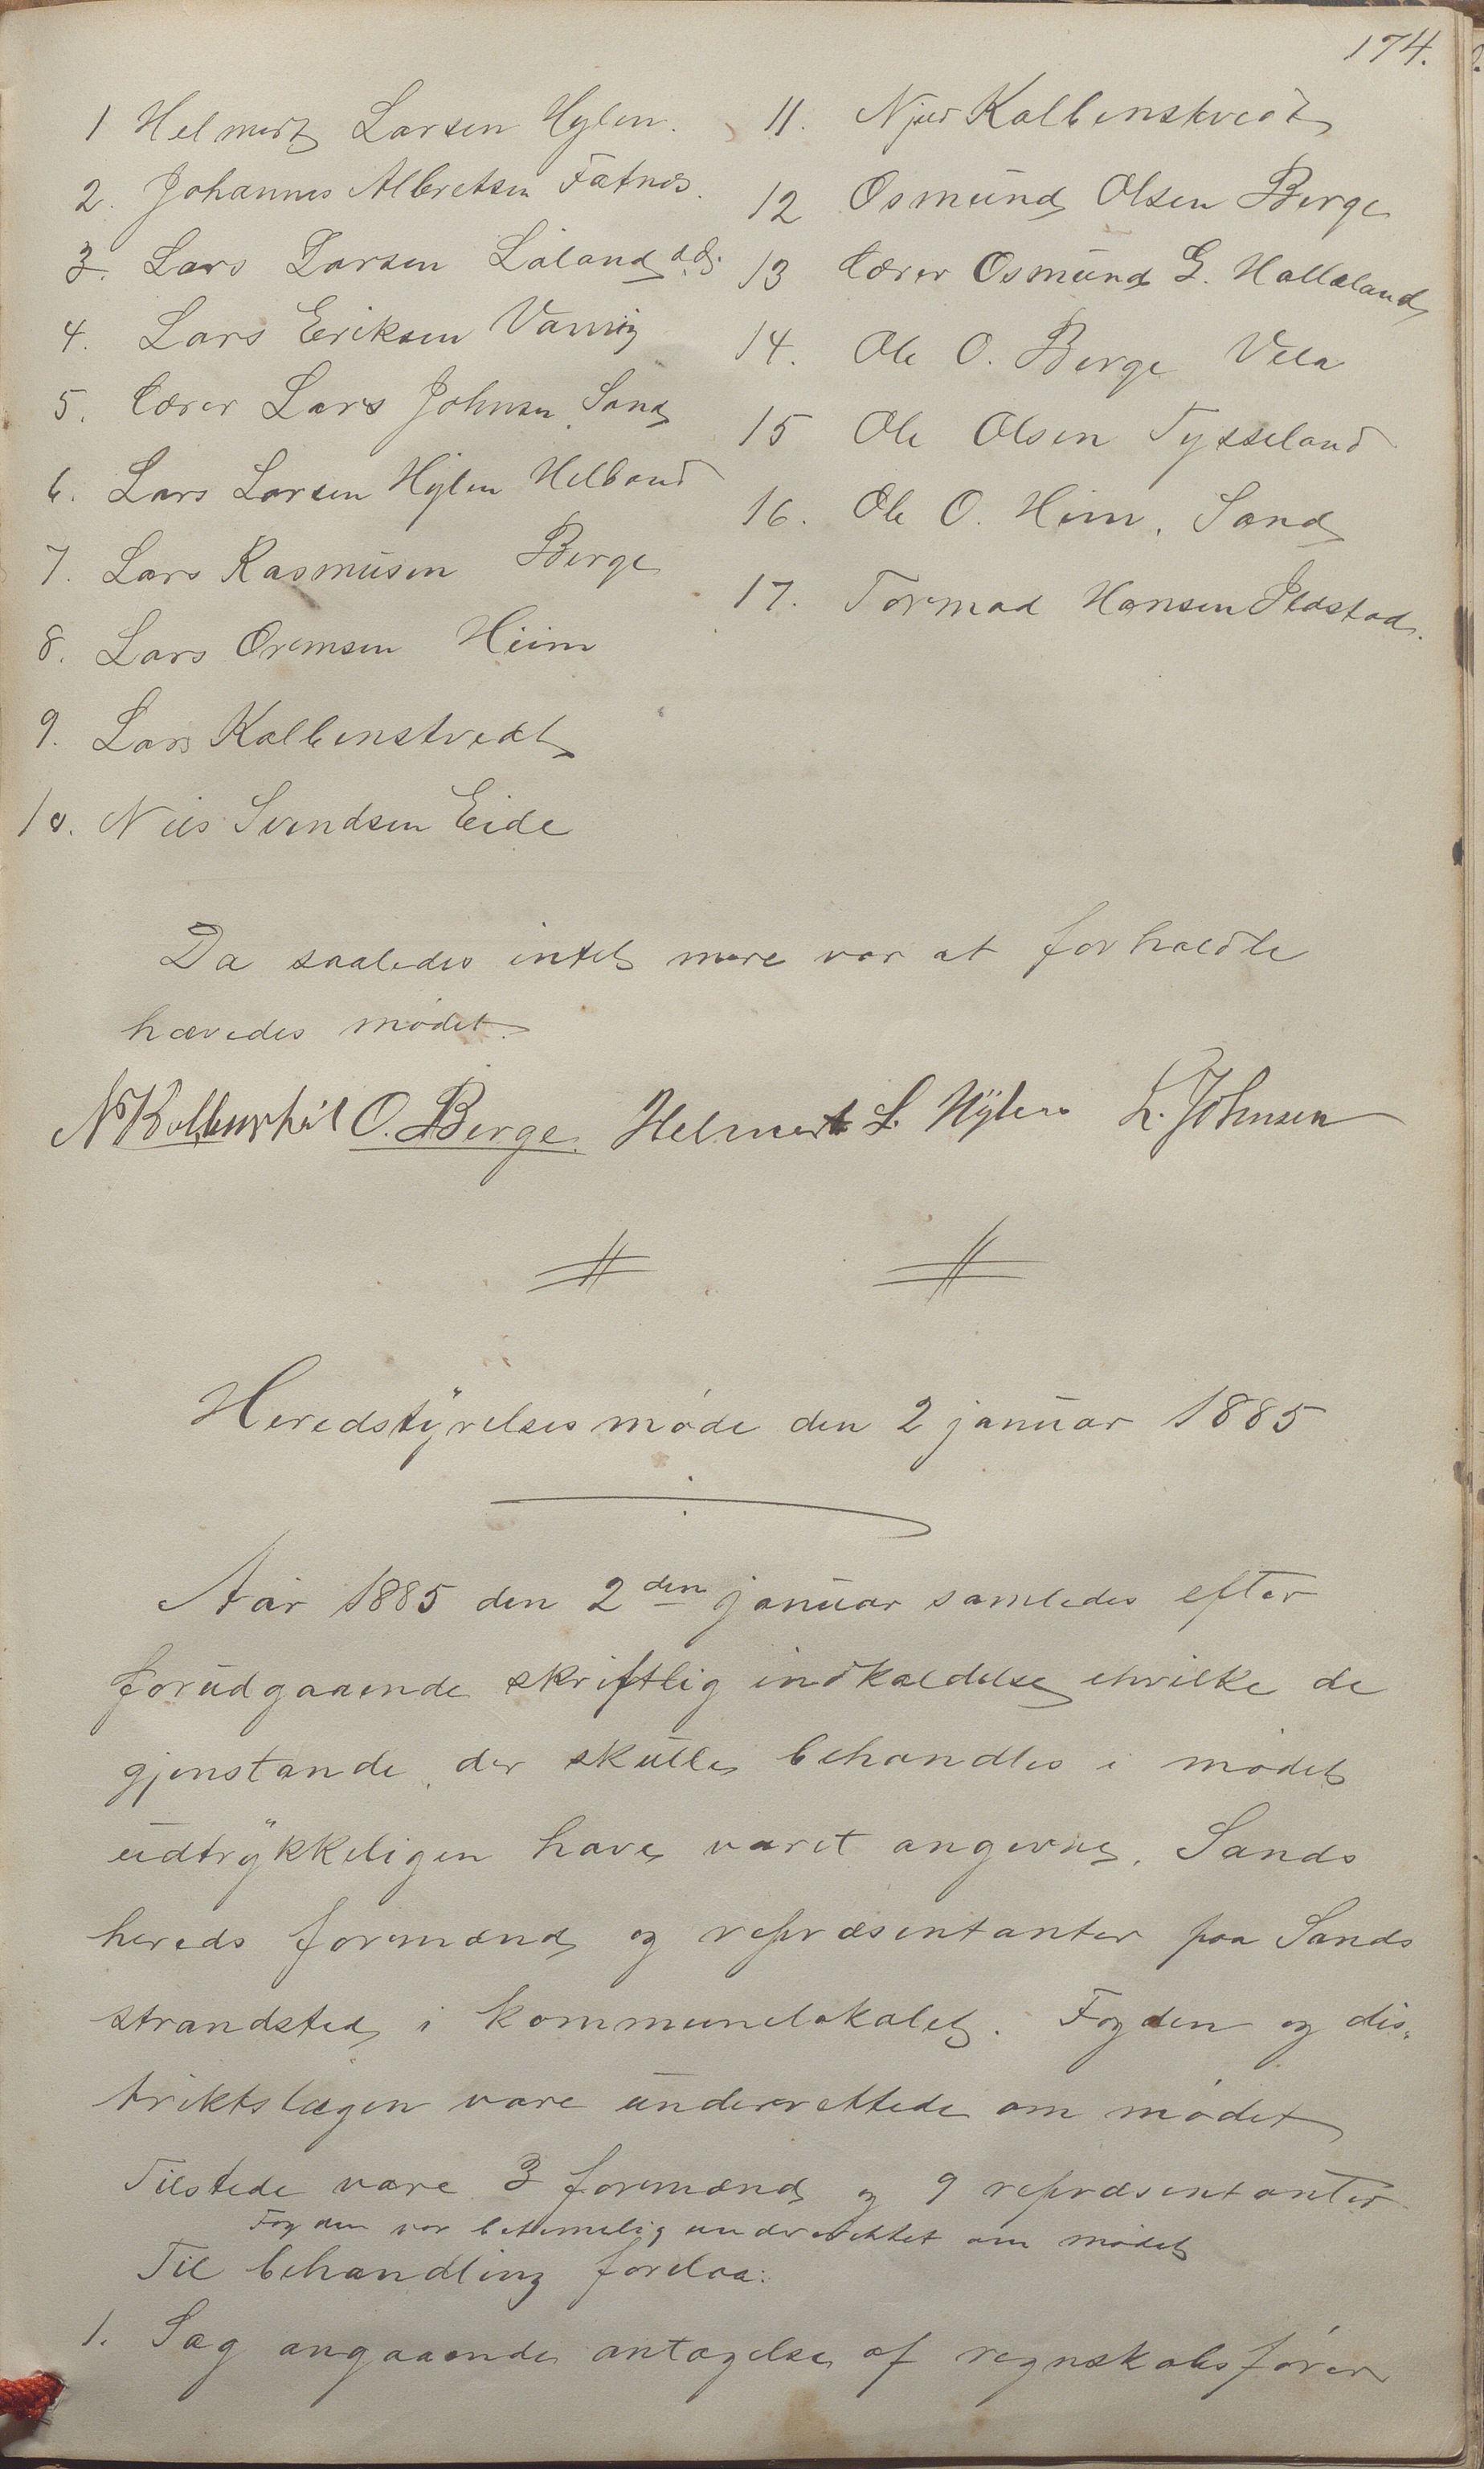 174.
1 Helmert Larsen Hylen.
2. Johannes Albretsen Fatnes.
3. Lars Larsen Laland d.æ.
4. Lars Eriksen Vanvig
5. Lærer Lars Johnsen, Sand
6. Lars Larsen Hylen Helland
7. Lars Rasmusen Berge
8. Lars Ormsen Hiim
9. Lars Kolbenstvedt
10. Nils Svendsen Eide
11. Njæd Kolbenstvedt
12 Osmund Olsen Berge
13 Lærer Osmund G. Halleland
14. Ole O. Berge Vela
15 Ole Olsen Tysseland
16. Ole O. Hiim, Sand
17. Tormod Hansen Ilastad.
Da saaledes intet mere var at forholdte
hævedes mødet.
O. Berge. Helmert L. Hylen L. Johnsen
Heredstyrelsesmøde den 2 januar 1885
Aar 1885 den 2den januar samledes efter
forudgaaende skriftlig indkaldelse ihvilke de
gjenstande, der skulle behandles i mødet
udtrykkeligen have været angivne, Sands
hereds formænd og repræsentanter paa Sands
strandsted i kommunelokalet. Fogden og dis-
triktslægen vare underrettede om mødet
Tilstede vare 3 formænd og 9 repræsentanter
Fogden var betimelig underrettet om mødet
Til behandling forelaa:
1. Sag angaaende antagelse af regnskabsfører